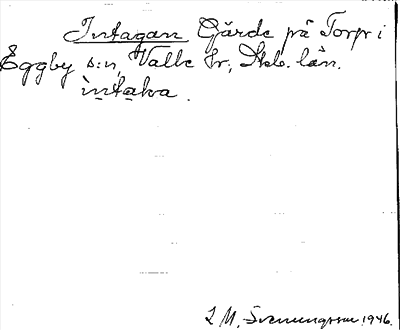 Intagan Gärde på Torp i
Eggby s:n, Valle hr., Skb. län.
ìntaka.
L M. Svenungsson 1946.